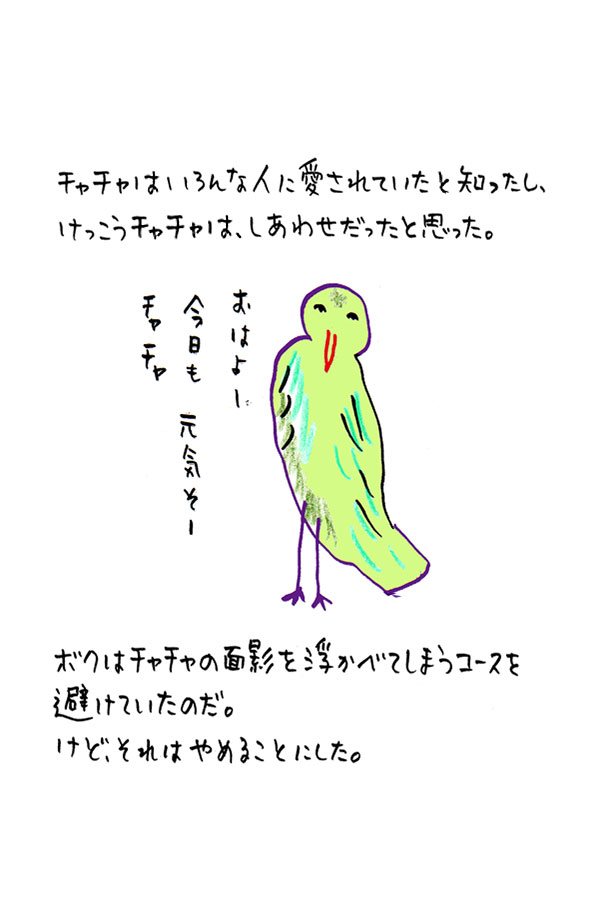 チャチャはいろんな人に愛されていたと知ったし、
けっこうチャチャは、しあわせだったと思った。
おはよー
今日も 元気そー
チャチャ
ボクはチャチャの面影を浮かべてしまうコースを
避けていたのだ。
けど、それはやめることにした。